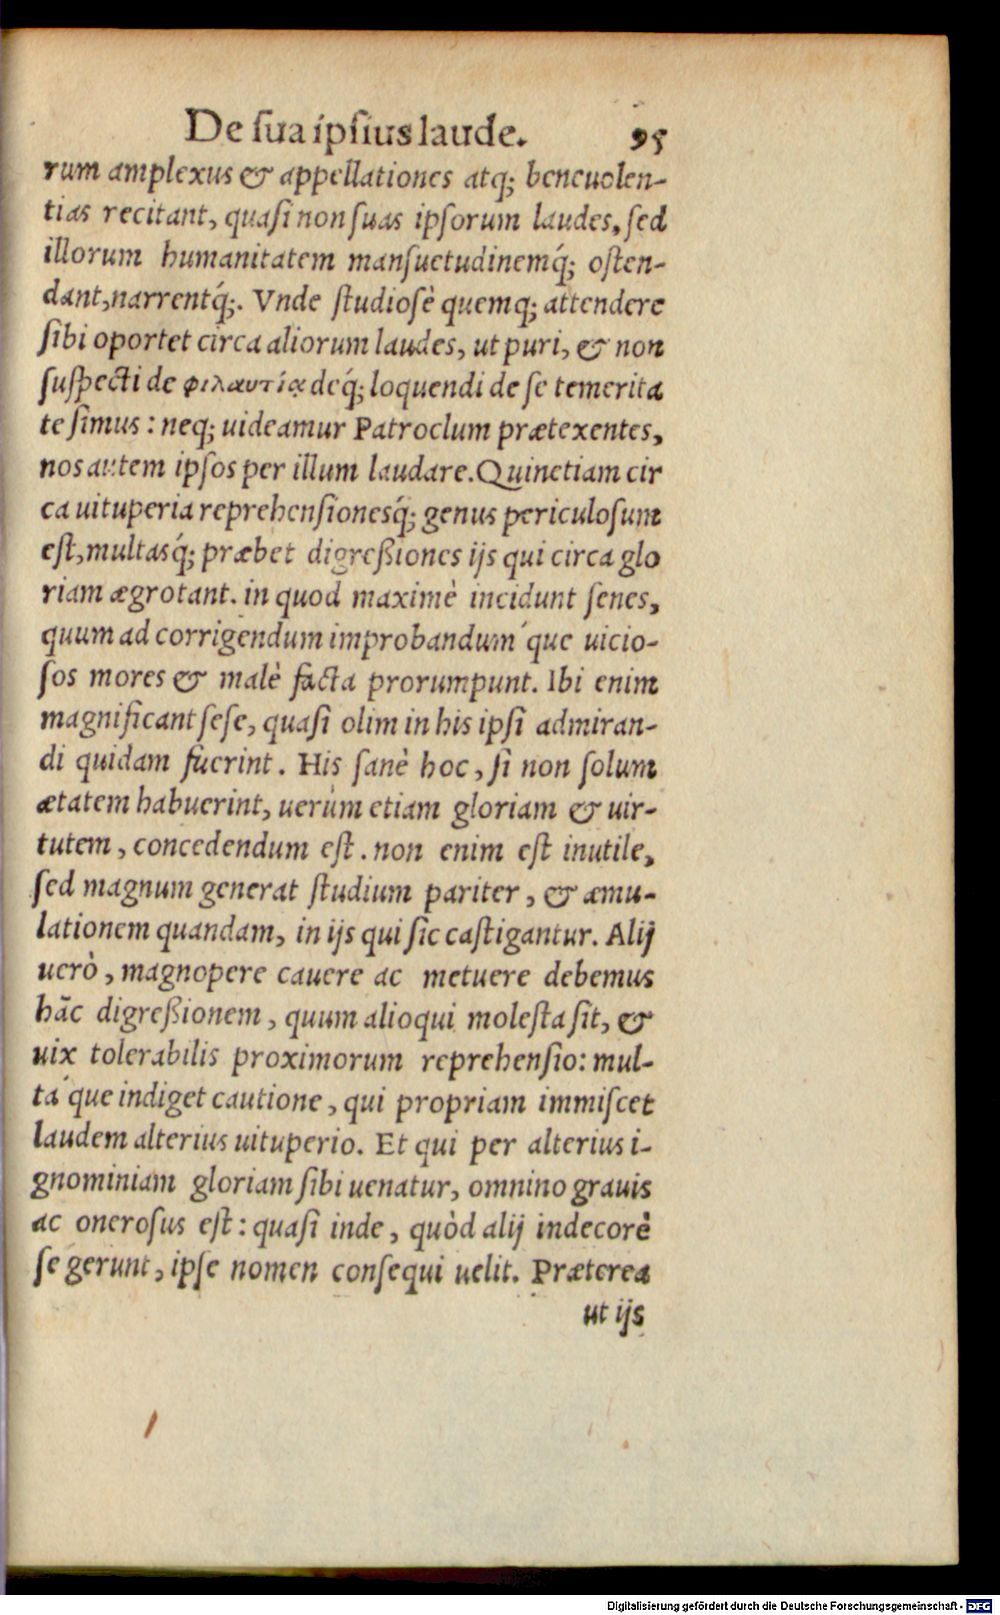 De ſua ipſius laude. 95
rum amplexus & appellationes atq; beneuolen-
tias recitant, quaſi non ſuas ipſorum laudes, ſed
illorum humanitatem manſuetudinemq́; oſten-
dant, narrentq́;. Vnde ſtudioſè quemq; attendere
ſibi oportet circa aliorum laudes, ut puri, & non
ſuſpecti de φιλαυτίᾳ deq́; loquendi de ſe temerita
te ſimus: neq; uideamur Patroclum prætexentes,
nos autem ipſos per illum laudare. Quinetiam cir
ca uituperia reprehenſionesq́; genus periculoſum
eſt, multasq́; præbet digreßiones ijs qui circa glo
riam ægrotant. in quod maximè incidunt ſenes,
quum ad corrigendum improbandum´que uicio-
ſos mores & malè facta prorumpunt. Ibi enim
magnificant ſeſe, quaſi olim in his ipſi admiran-
di quidam fuerint. His ſanè hoc, ſi non ſolum
ætatem habuerint, uerùm etiam gloriam & uir-
tutem, concedendum eſt. non enim eſt inutile,
ſed magnum generat ſtudium pariter, & æmu-
lationem quandam, in ijs qui ſic caſtigantur. Alij
uerò, magnopere cauere ac metuere debemus
hãc digreßionem, quum alioqui moleſta ſit, &
uix tolerabilis proximorum reprehenſio: mul-
ta´que indiget cautione, qui propriam immiſcet
laudem alterius uituperio. Et qui per alterius i-
gnominiam gloriam ſibi uenatur, omnino grauis
ac oneroſus eſt: quaſi inde, quòd alij indecorè
ſe gerunt, ipſe nomen conſequi uelit. Præterea
ut ijs
Digitalisierung gefördert durch die Deutsche Forschungsgemeinschaft - DFG